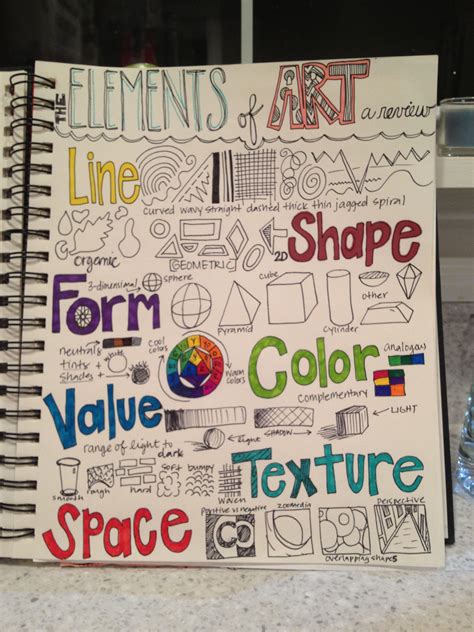 THE ELEMENTS of ART a review
Line
curved wavy straight dashed thick thin jagged spiral
organic
GEOMETRIC
2D
Shape
3-dimensional
sphere
cube
Form
pyramid
cylinder
other
neutrals
tints +
shades
white
cool colors
warm colors
Color
analogous
complementary
Value
range of light to dark
light
SHADOW
LIGHT
smooth
rough
hard
soft
bumpy
woven
Texture
Space
Positive vs negative
zoomed in
overlapping shapes
Perspective